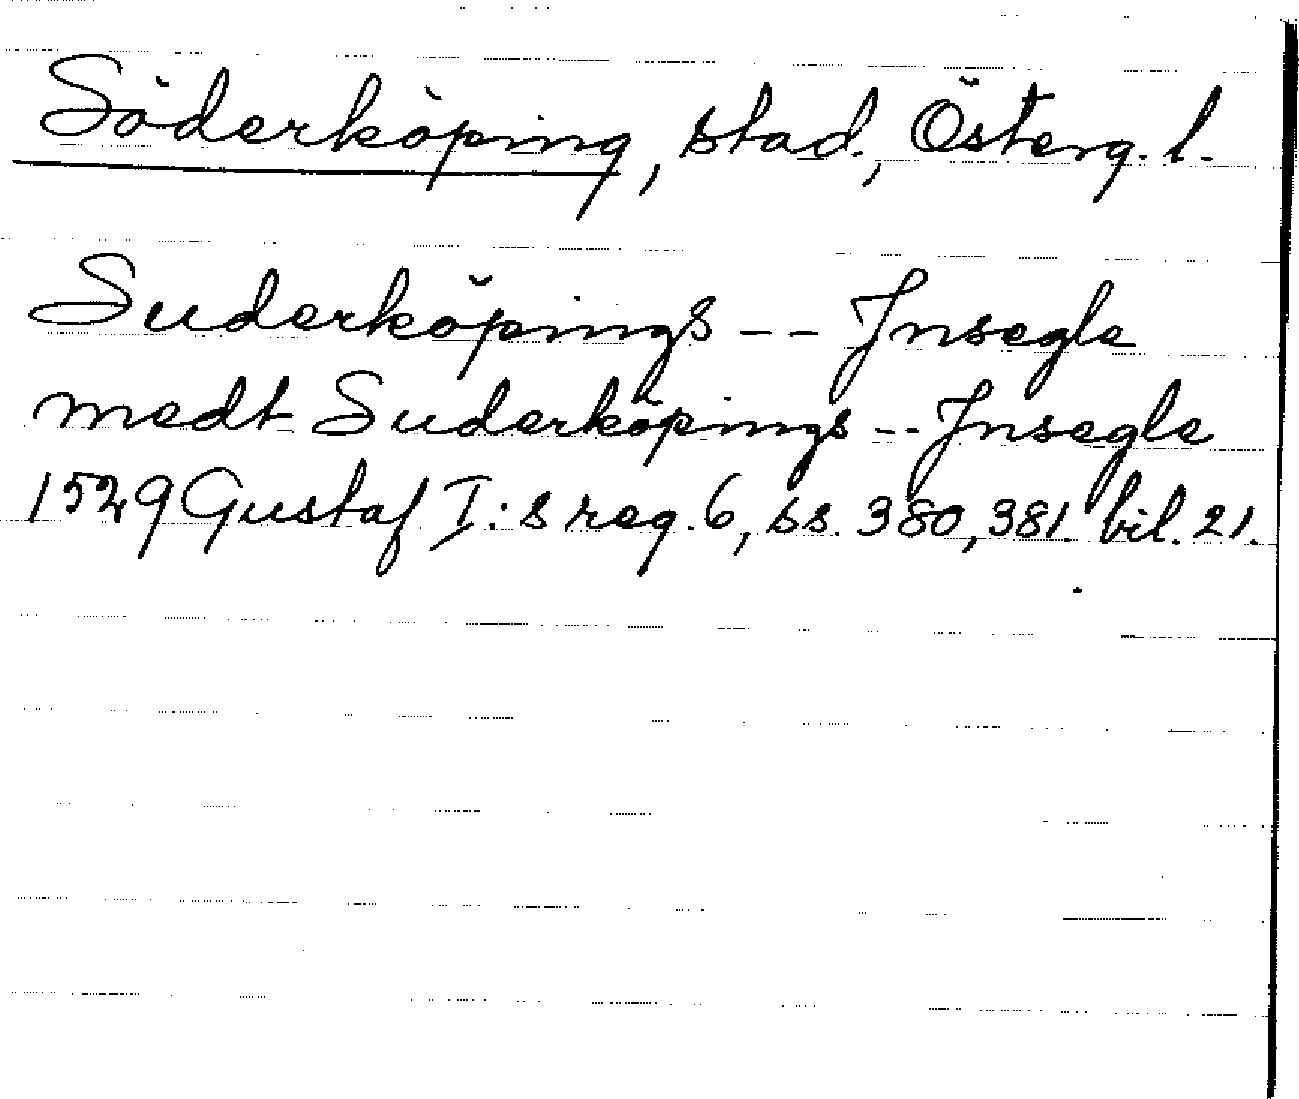 Söderköping, stad., Österg. l.
Suderköpings -- Jnsegle
medt Suderköpings -- Jnsegle
1529 Gustaf I:s reg. 6, ss. 380, 381. bil. 21.